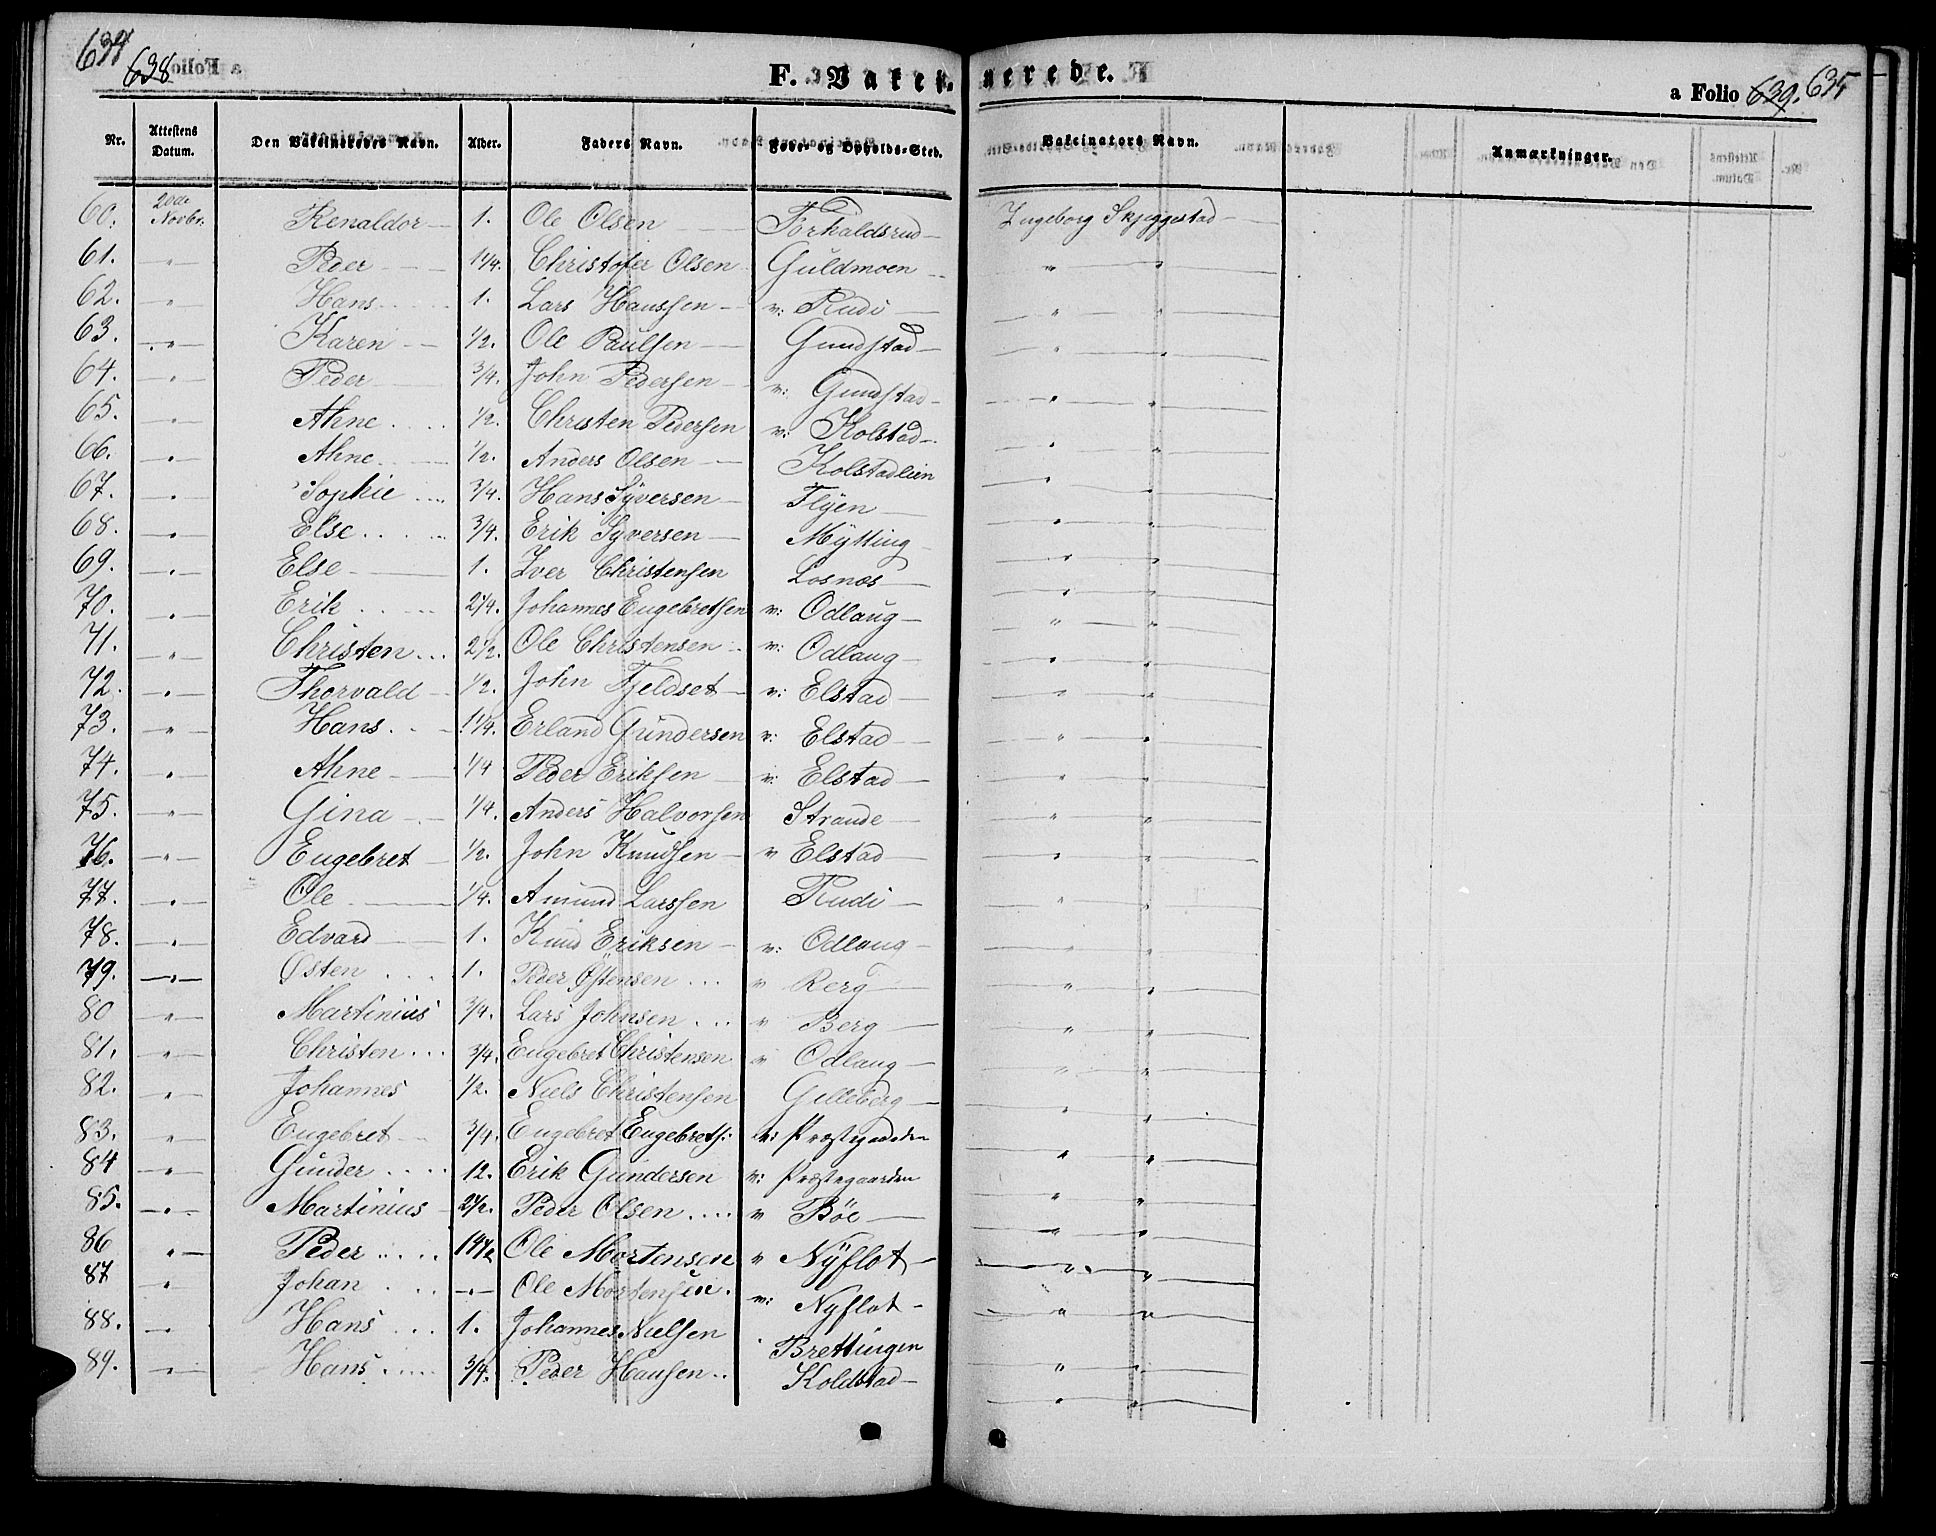 638
F. Vakcinerede.
a Folio 639. 635
Nr. Attestens Datum. Den Vakcineredes Navn. Alder. Faders Navn. Føde- og Opholds-Sted. Vakcinators Navn. Anmærkninger.
60. 20de Novbr. Renaldor 1. Ole Olsen Torhaldsrud Ingeborg Skjeggestad
61. " Peder 1 1/4. Christofer Olsen Guldmoen " "
62. " Hans 1. Lars Hanssen v: Rudi " "
63. " Karen 1/2. Ole Paulsen Gundstad " "
64. " Peder 3/4. John Pedersen v: Gundstad " "
65. " Ahne 1/2. Christen Pedersen v: Kolstad " "
66. " Ahne 1/2. Anders Olsen Kolstadlien " "
67. " Sophie 3/4. Hans Syversen Flyen " "
68. " Else 3/4. Erik Syversen Mytting " "
69. " Else 1. Iver Christensen Losnæs " "
70. " Erik 2 1/4. Johannes Engebretsen v: Odlaug " "
71. " Christen 2 1/2. Ole Christensen v: Odlaug " "
72. " Thorvald 1/2. John Fjeldset v: Elstad " "
73. " Hans 1 1/4. Erland Gundersen v: Elstad " "
74. " Ahne 1/4 Peder Eriksen v: Elstad " "
75. " Gina 1/4. Anders Halvorsen Strande " "
76. " Engebret 1/2. John Knudsen v Elstad " "
77. " Ole 1/4. Amund Larssen Rudi " "
78. " Edvard 1. Knud Eriksen v: Odlaug " "
79. " Østen 1. Peder Østensen v Berg " "
80 " Martinius 3/4. Lars Johnsen v Berg " "
81. " Christen 3/4. Engebret Christensen v Odlaug " "
82. " Johannes 1/2. Niels Christensen Gilleberg " "
83. " Engebret 3/4. Engebret Engebrets: v: Præstegaarden " "
84 " Gunder 12. Erik Gundersen v: Præstegaarden " "
85. " Martinius 2 1/2. Peder Olsen v Böe " "
86 " Peder 14 1/2 Ole Mortensen v Nÿflot " "
87 " Johan " Ole Mortensen. v: Nyflot " "
88. " Hans 1. Johannes Nielsen Brettingen " "
89. " Hans 3/4. Peder Hansen Koldstad " "